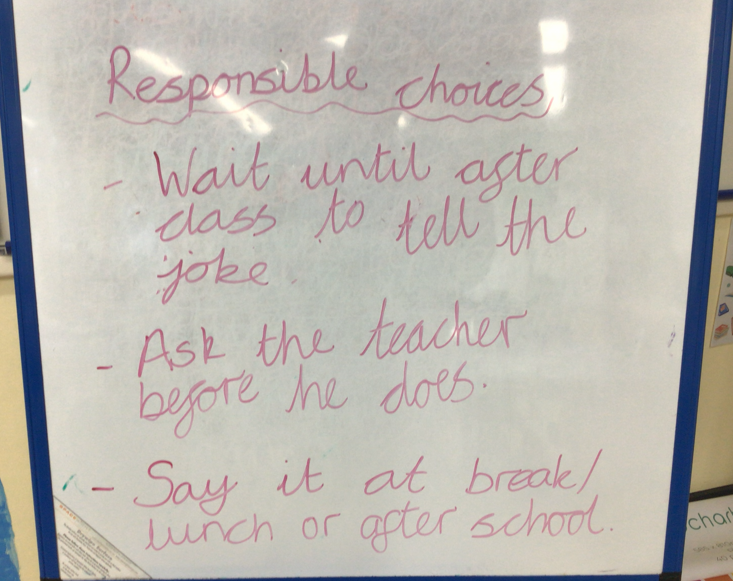 Responsible choices
- Wait until after
class to tell the
joke.
- Ask the teacher
before he does.
- Say it at break/
lunch or after school.
char